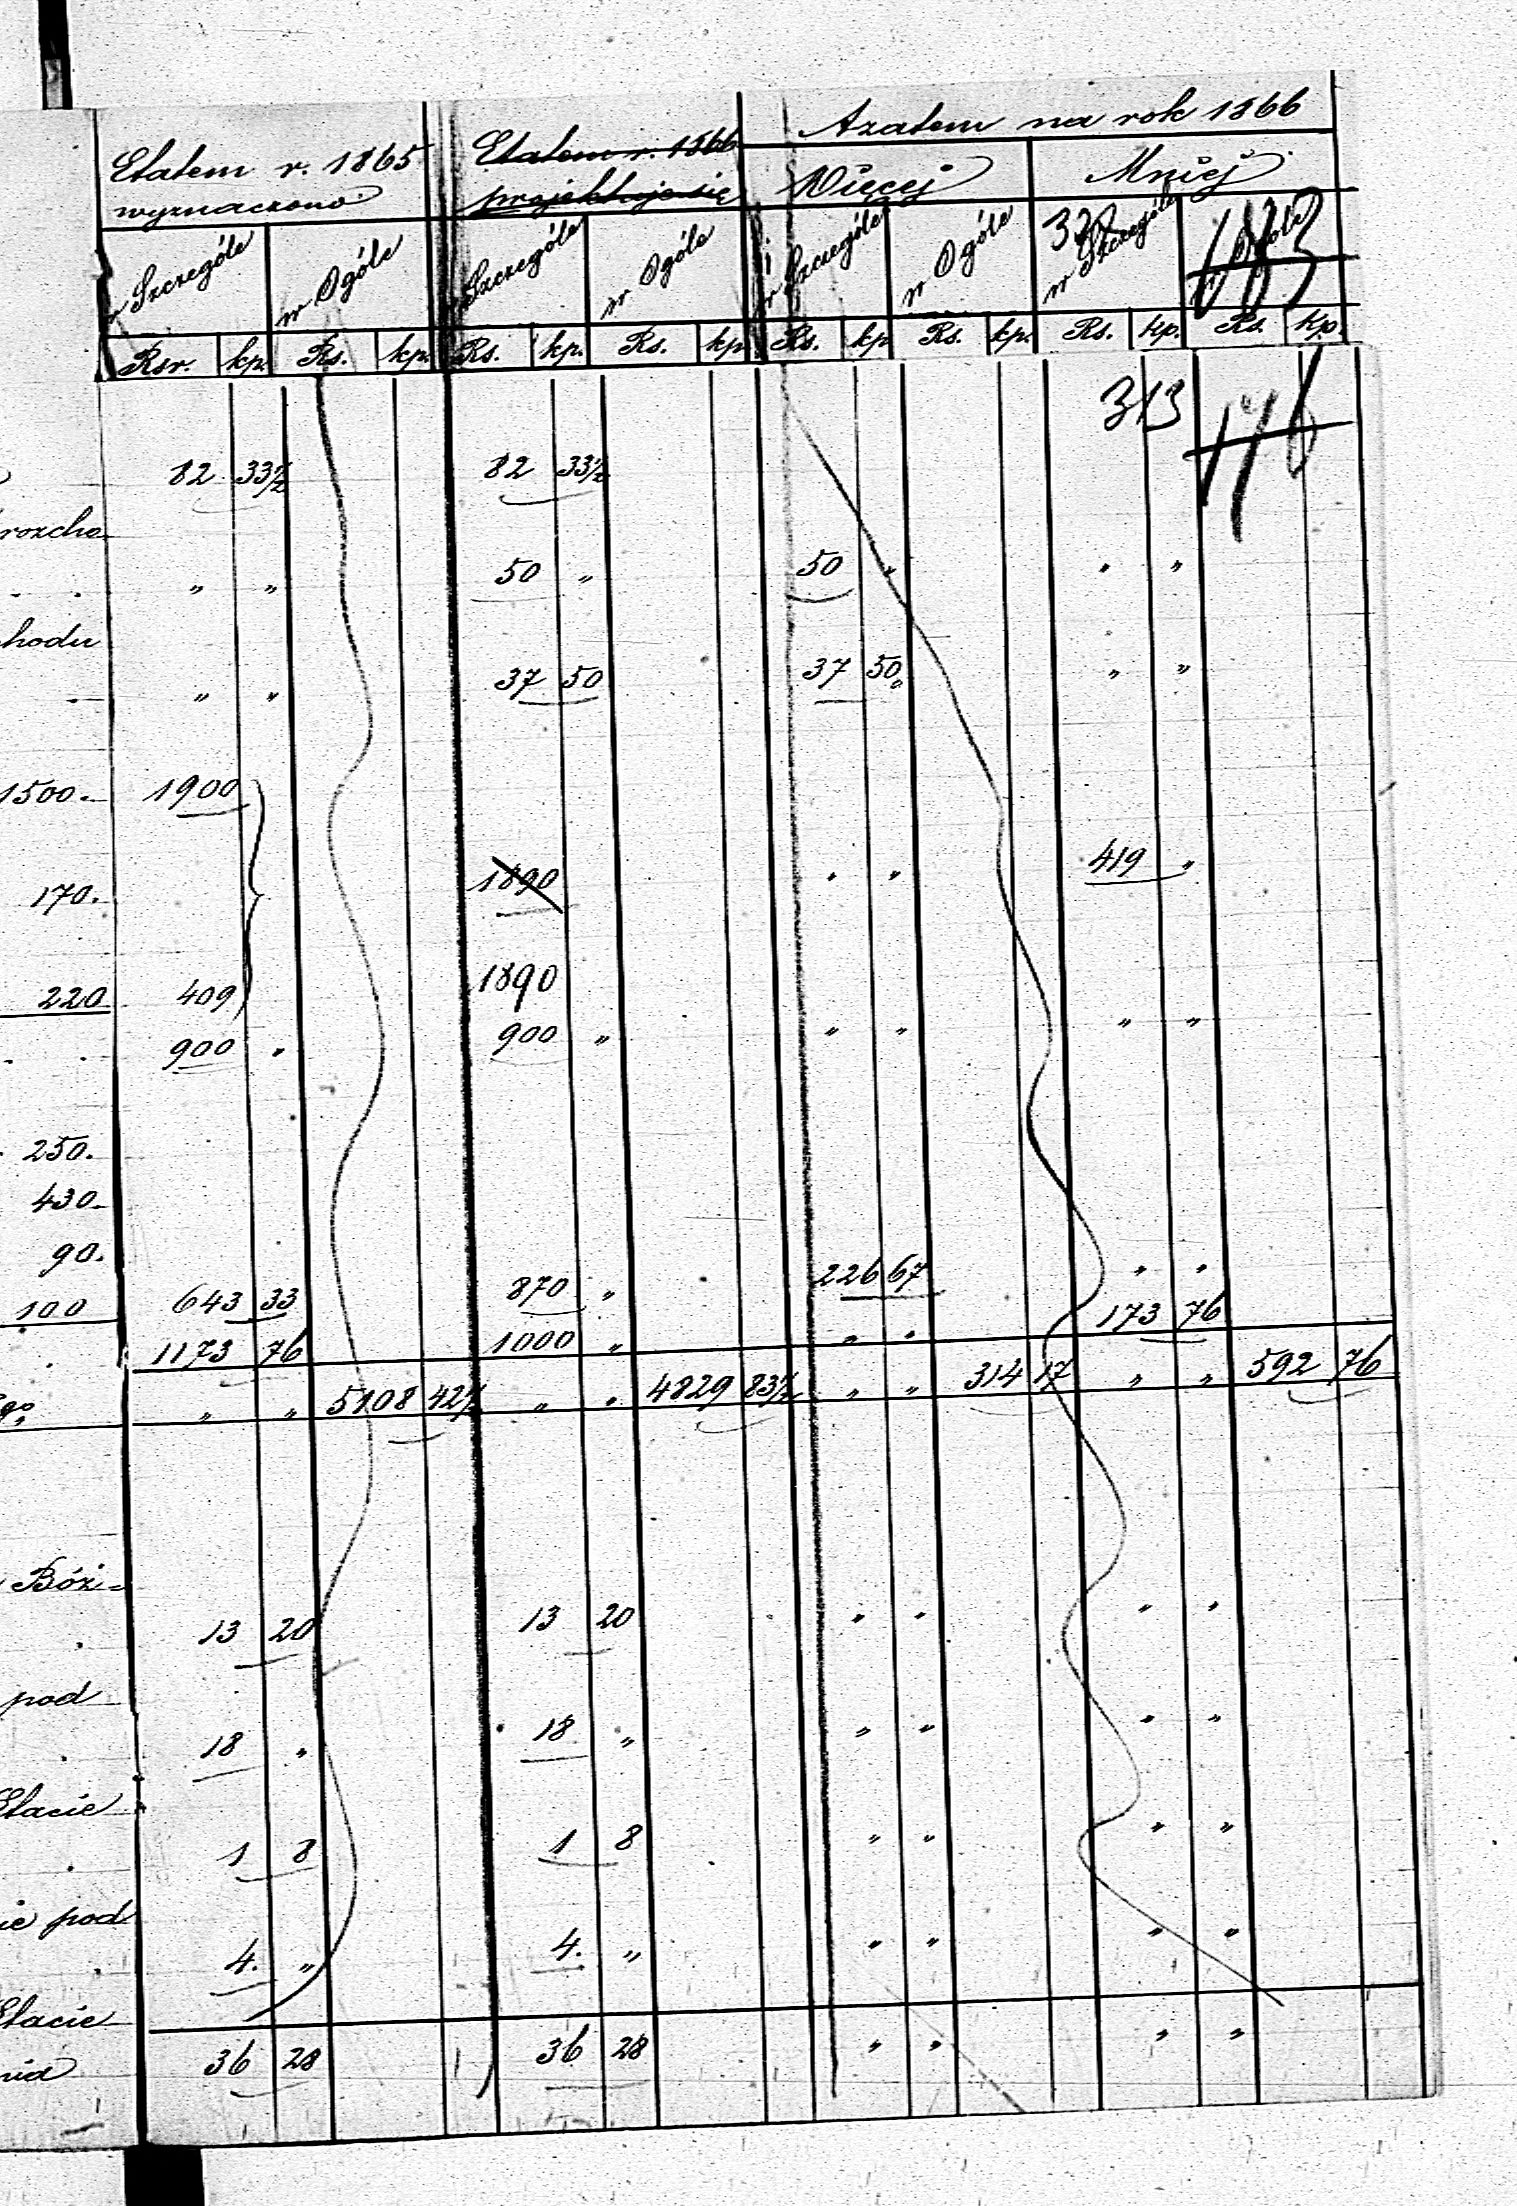 A zatem na rok 1866
Etatem r. 1865 Etatem r. 1866 Więcej Mniej
wyznaczono projektuje się
w Szczególe w Ogóle w Szczególe w Ogóle w Szczególe w Ogóle w Szczególe w Ogóle
Rsr. kp. Rs. kp. Rs. kp. Rs. kp. Rs. kp. Rs. kp. Rs. kp. Rs. kp.
313 176
82 33½ 82 33½
rozcho
. . " " 50 " 50 " " "
hodu
" " 37 50 37 50 " " "
1500. 1900
170. 1890 " " 419 "
1890
220 409
. . 900 " 900 " " " " "
250.
430.
90.
100 643 33 870 " 226 67 " "
. 1173 76 1000 " " " 173 76
" " 5108 42½ " " 4829 83½ " " 314 17 " " 592 76
Bóż=
. 13 20 13 20 " " " "
pod
. 18 " 18 " " " " "
Etacie
. 1 8 1 8 " " " "
ie pod
. 4. " 4. " " " " "
Etacie
36 28 36 28 " " " "